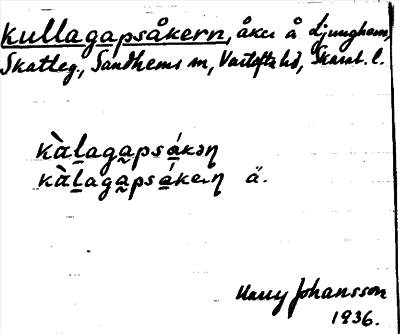 Kullagapsåkern, åker å Ljunghem,
Skatteg., Sandhems sn, Vartofta hd, Skarab. l.
kùlagapsákən
kùlagapsáken ä.
Harry Johansson
1936.